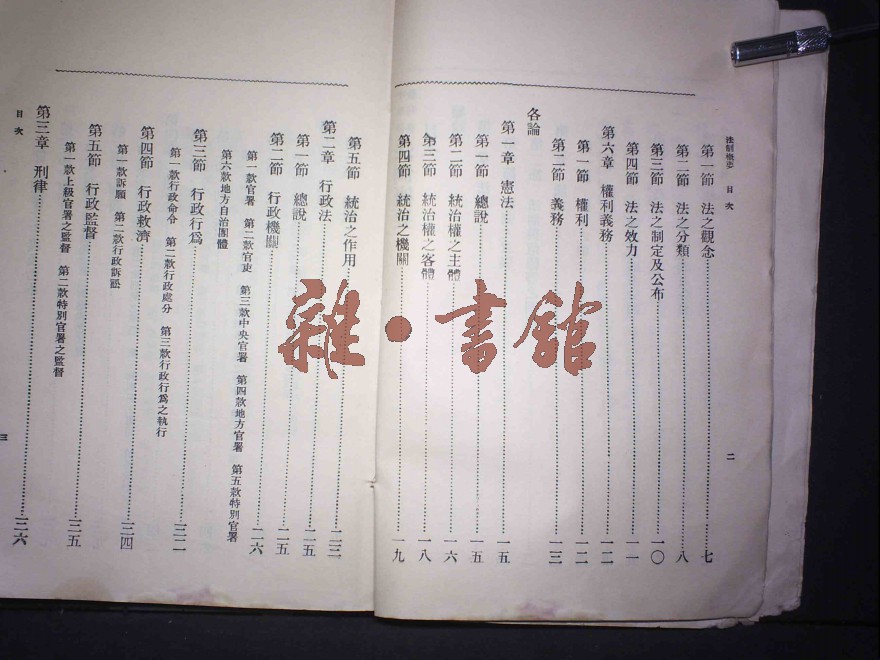 法制概要 目次 二
第一節 法之觀念 七
第二節 法之分類 八
第三節 法之制定及公布 一〇
第四節 法之效力 一一
第六章 權利義務 一二
第一節 權利 一二
第二節 義務 一三
各論
第一章 憲法 一五
第一節 總說 一五
第二節 統治權之主體 一六
第三節 統治權之客體 一八
第四節 統治之機關 一九
第五節 統治之作用 二三
第二章 行政法 二五
第一節 總說 二五
第二節 行政機關 二六
第一款官署 第二款官吏 第三款中央官署 第四款地方官署 第五款特別官署
第六款地方自治團體
第三節 行政行爲 三二
第一款行政命令 第二款行政處分 第三款行政行爲之執行
第四節 行政救濟 三四
第一款訴願 第二款行政訴訟
第五節 行政監督 三五
第一款上級官署之監督 第二款特別官署之監督
第三章 刑律 三六
目次 三
雜·書館